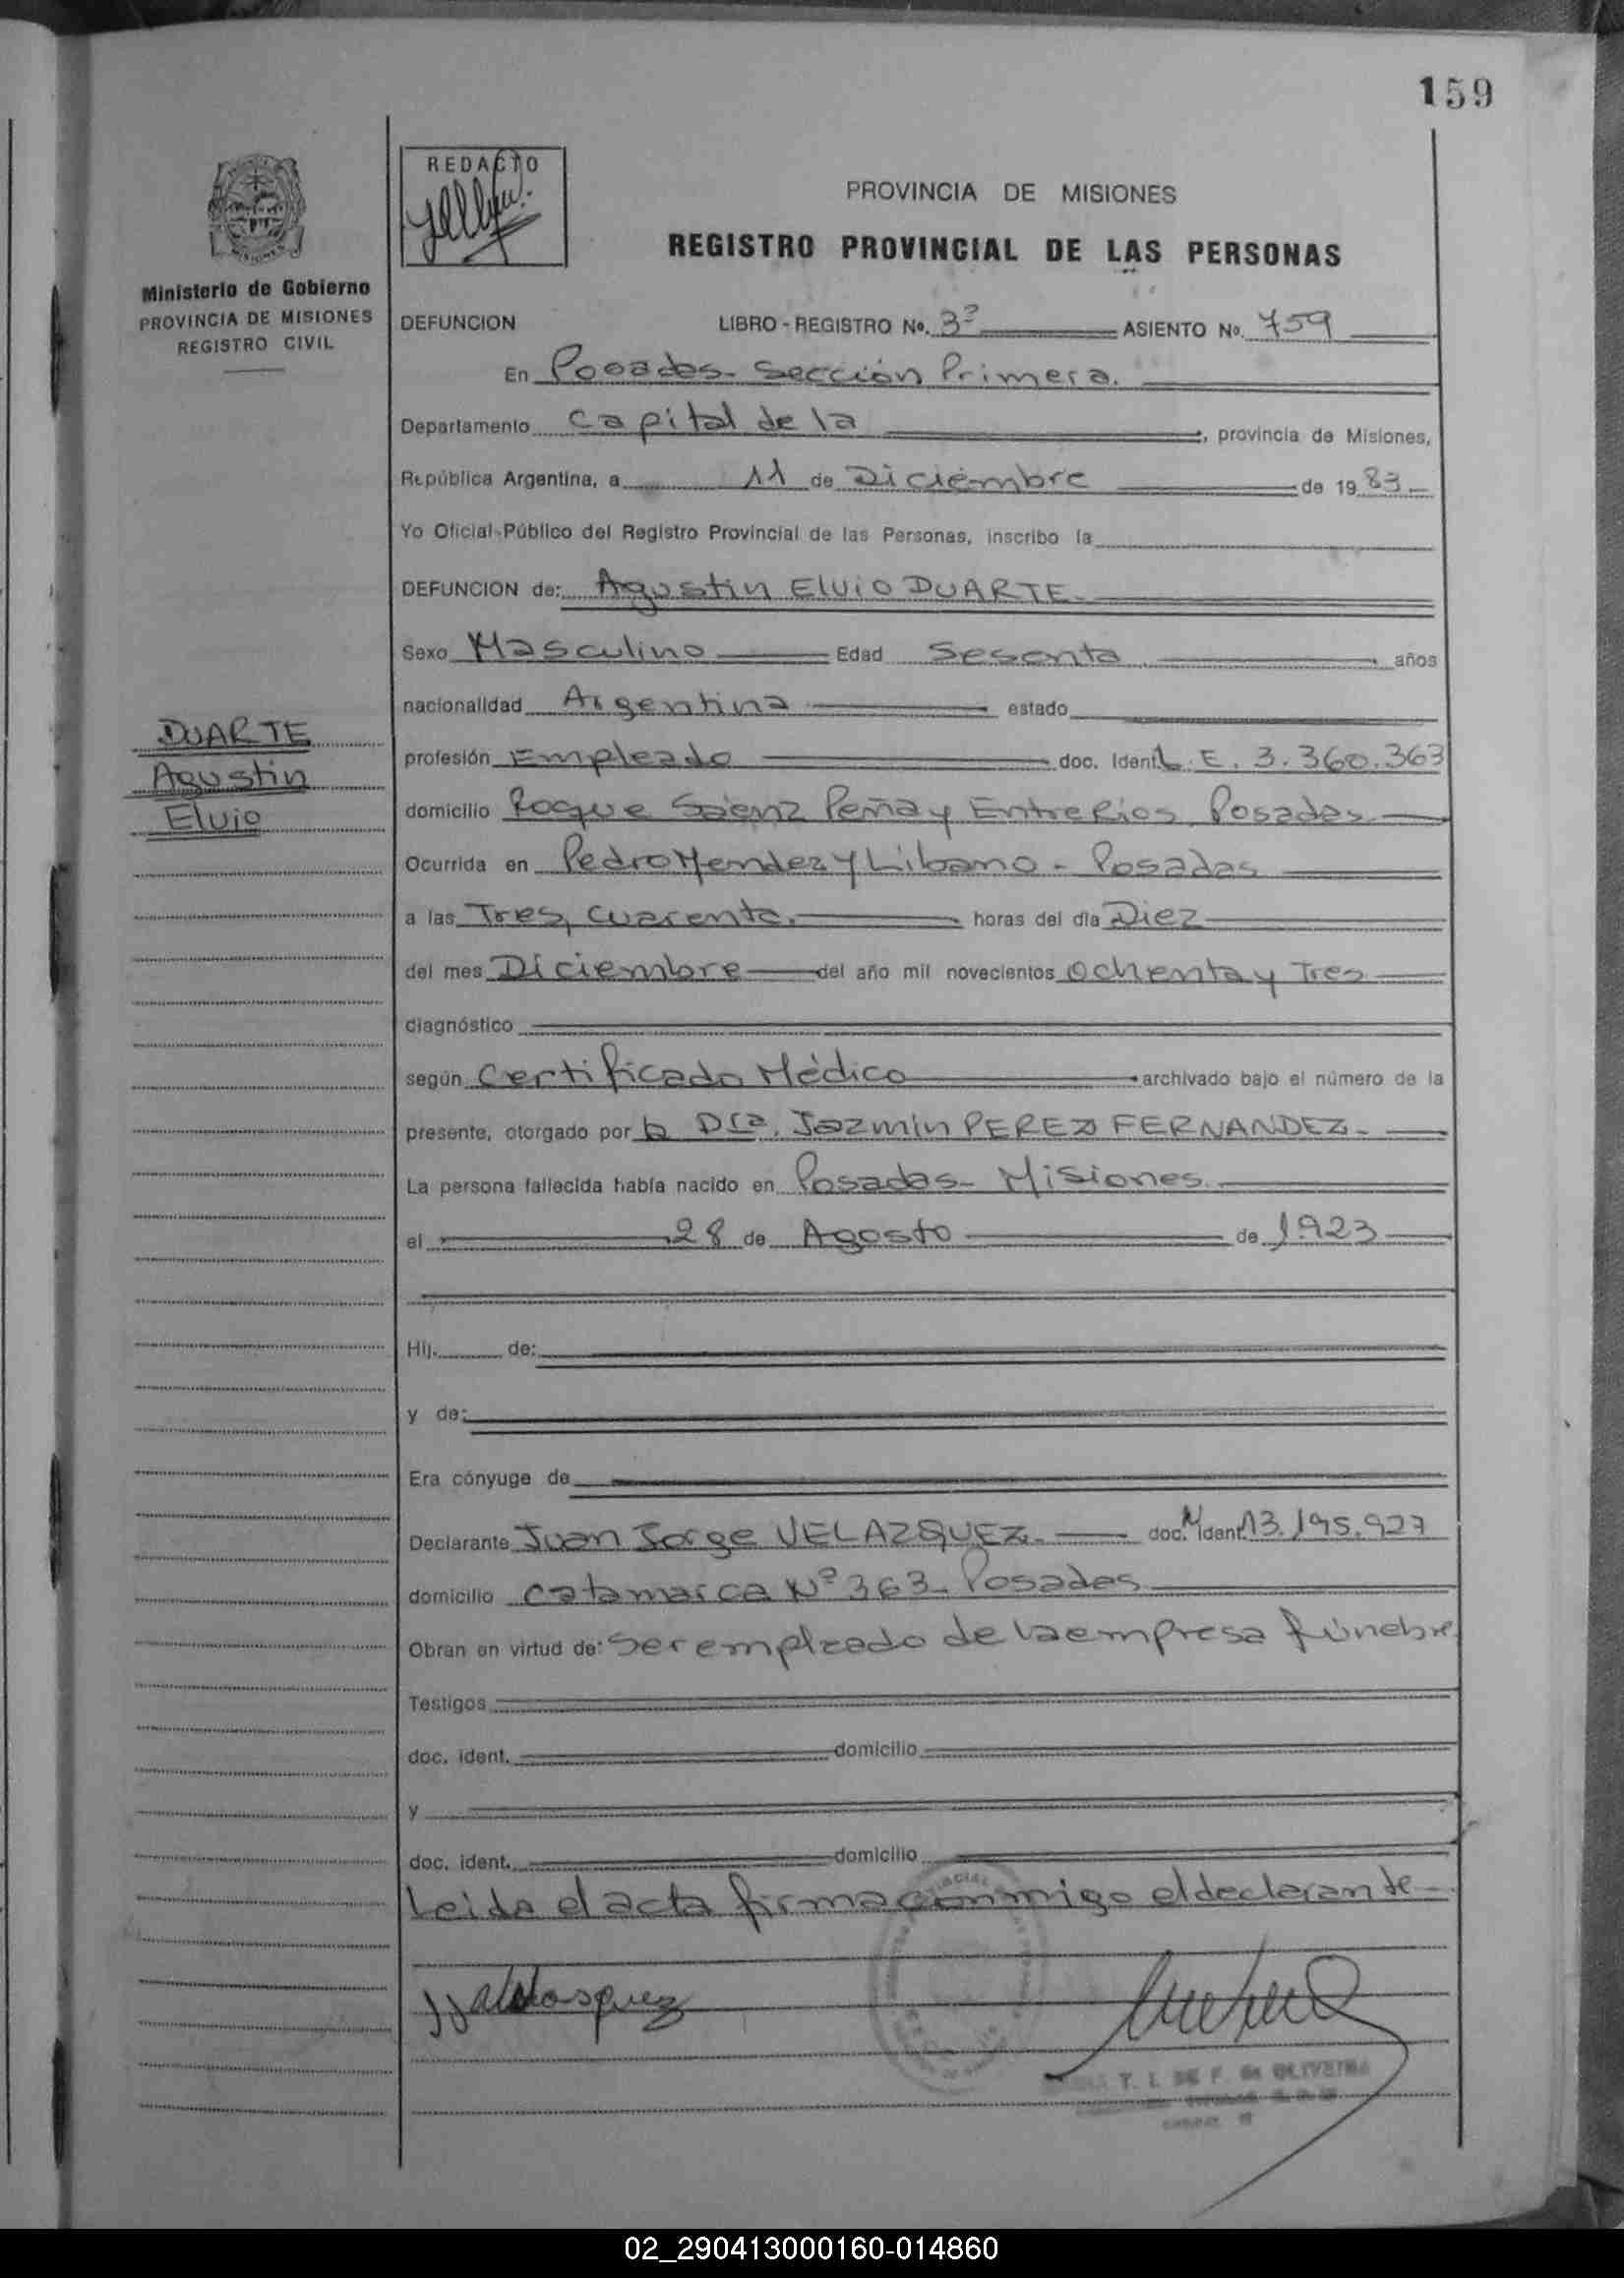 159
REDACTO
PROVINCIA DE MISIONES
REGISTRO PROVINCIAL DE LAS PERSONAS
Ministerio de Gobierno
PROVINCIA DE MISIONES
REGISTRO CIVIL
DEFUNCION LIBRO - REGISTRO No. 3º ASIENTO No. 759
En Posadas - Sección Primera.
Departamento Capital de la, provincia de Misiones,
República Argentina, a 11 de Diciembre de 1983
Yo Oficial Público del Registro Provincial de las Personas, inscribo la
DEFUNCION de: Agustin Elvio DUARTE
Sexo Masculino Edad Sesenta años
nacionalidad Argentina estado
DUARTE
Agustin
Elvio
profesión Empleado doc. Ident. L.E. 3.360.363
domicilio Roque Sáenz Peña y Entre Rios Posadas
Ocurrida en Pedro Mendez y Libano - Posadas
a las Tres, cuarenta. horas del día Diez
del mes Diciembre del año mil novecientos ochenta y Tres
diagnóstico
según Certificado Médico archivado bajo el número de la
presente, otorgado por la Dra. Jazmin PEREZ FERNANDEZ -
La persona fallecida había nacido en Posadas - Misiones.
el 28 de Agosto de 1923
Hij. de:
y de:
Era cónyuge de
Declarante Juan Jorge VELAZQUEZ. doc. ident. 13.195.927
domicilio Catamarca Nº 363 - Posadas
Obran en virtud de: Ser empleado de la empresa fúnebre
Testigos
doc. ident. domicilio
y
doc. ident. domicilio
Leida el acta firma conmigo el declarante -
T. I. DE F. de OLIVEIRA
02_290413000160-014860